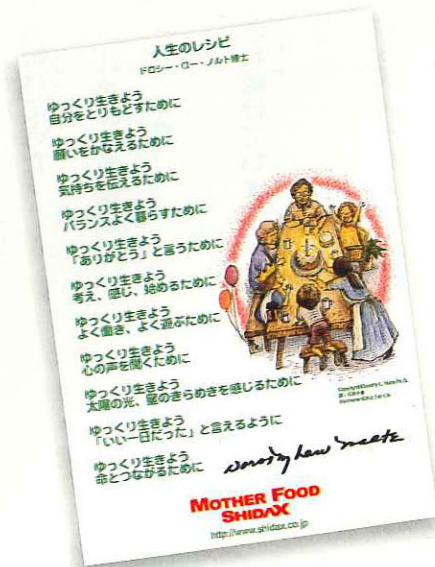 人生のレシピ
ドロシー・ロー・ノルト博士
ゆっくり生きよう
自分をとりもどすために
ゆっくり生きよう
願いをかなえるために
ゆっくり生きよう
気持ちを伝えるために
ゆっくり生きよう
バランスよく暮らすために
ゆっくり生きよう
「ありがとう」と言うために
ゆっくり生きよう
考え、感じ、始めるために
ゆっくり生きよう
よく働き、よく遊ぶために
ゆっくり生きよう
心の声を聞くために
ゆっくり生きよう
太陽の光、星のきらめきを感じるために
ゆっくり生きよう
「いい一日だった」と言えるように
ゆっくり生きよう
命とつながるために
MOTHER FOOD
SHIDAX
http://www.shidax.co.jp